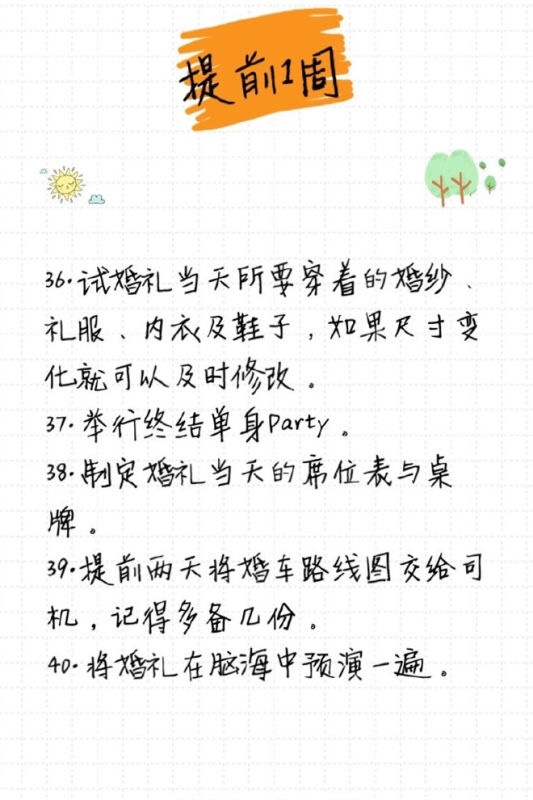 提前1周
36.试婚礼当天所要穿着的婚纱、
礼服、内衣及鞋子，如果尺寸变
化就可以及时修改。
37.举行终结单身Party。
38.制定婚礼当天的席位表与桌
牌。
39.提前两天将婚车路线图交给司
机，记得多备几份。
40.将婚礼在脑海中预演一遍。